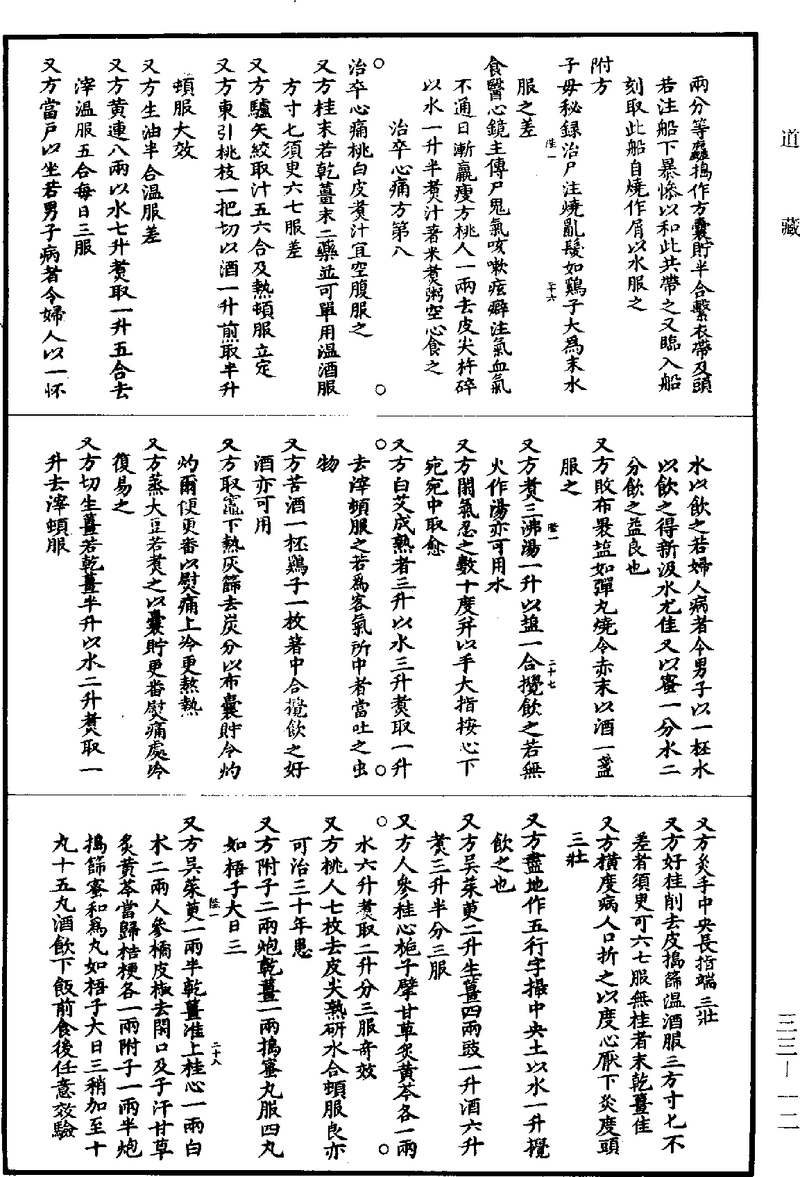 道藏
兩分等蟲搗作方囊貯半合繫衣帶及頭
若注船下暴慘以和此共帶之又臨入船
刻取此船自燒作屑以水服之
附方
子母秘録治尸注燒亂髮如鷄子大為末水
陞一
二十六
服之差
食醫心鏡主傳尸鬼氣咳嗽痃癖注氣血氣
不通日漸羸瘦方桃人一兩去皮尖杵碎
以水一升半煑汁著米煑粥空心食之
治卒心痛方第八
治卒心痛桃白皮煑汁宜空腹服之
又方桂末若乾薑末二藥並可單用温酒服
方寸七須臾六七服差
又方驢矢絞取汁五六合及熱頓服立定
又方東引桃枝一把切以酒一升煎取半升
頓服大效
又方生油半合温服差
又方黄連八兩以水七升煑取一升五合去
滓温服五合每日三服
又方當戸以坐若男子病者令婦人以一怀
水以飲之若婦人病者令男子以一杯水
以飲之得新汲水尤佳又以蜜一分水二
分飲之益良也
又方敗布褁盐如彈丸燒令赤末以酒一盞
服之
又方煑三沸湯一升以盐一合攪飲之若無
陞一
二十七
火作湯亦可用水
又方閉氣忍之數十度并以手大指按心下
宛宛中取愈
又方白艾成熟者三升以水三升煑取一升
去滓頓服之若為客氣所中者當吐之虫
物
又方苦酒一杯鷄子一枚著中合攪飲之好
酒亦可用
又方取竈下熱灰篩去炭分以布囊貯令灼
灼爾便更番以熨痛上冷更熬熱
又方蒸大豆若煑之以囊貯更番熨痛處冷
復易之
又方切生薑若乾薑半升以水二升煑取一
升去滓頓服
又方灸手中央長指端三壯
又方好桂削去皮搗篩温酒服三方寸七不
差者須臾可六七服無桂者末乾薑佳
又方横度病人口折之以度心厭下灸度頭
三壯
又方畫地作五行字撮中央土以水一升攪
飲之也
又方吴茱萸二升生薑四兩豉一升酒六升
煑三升半分三服
又方人參桂心栀子擘甘草炙黄芩各一兩
水六升煑取二升分三服奇效
又方桃人七枚去皮尖熟研水合頓服良亦
可治三十年患
又方附子二兩炮乾薑一兩搗蜜丸服四丸
如梧子大日三
陞一
二十八
又方吴茱萸一兩半乾薑准上桂心一兩白
术二兩人參橘皮椒去閉口及子汗甘草
炙黄芩當歸桔梗各一兩附子一兩半炮
搗篩蜜和為丸如梧子大日三稍加至十
丸十五丸酒飲下飯前食後任意效驗
三三—一二